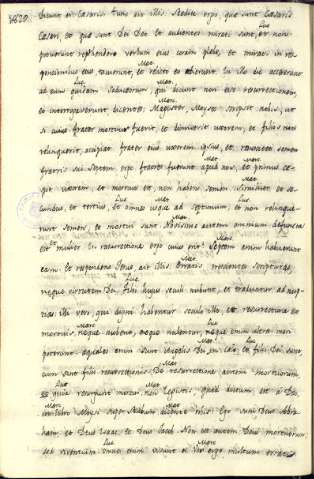 dicunt ei Cæsaris tunc ait illis Reddite ergo, quæ sunt Cæsaris
Luc
Cæsari, et quæ sunt Dei Deo et audientes mirati sunt, et non
potuerunt reprehendere verbum eius coram plebe, et mirati in res
Mar
ponso eius tacuerunt, et relicto eo abierunt In illo die accesserunt
Luc
ad eum quidam Saducæorum, qui dicunt non esse resurrectionem,
Mar
et interrogaverunt dicentes Magister, Moyses scripsit nobis, ut
si cuius frater mortuus fuerit, et dimiserit uxorem, et filios non
reliquerit, accipiat frater eius uxorem ipsius, et resuscitet semen
fratri suo Septem ergo fratres fuerunt apud nos, et primus
uxorem, et mortuus et non habito semen similiter et se-
Luc Mar
cundus, et tertius, et omnes usque ad septimum, et non relinque-
Mar
runt semen, et mortui sunt Novissime autem omnium defuncta
est et mulier In resurrectione ergo cuius erit Septem enim habuerunt
Mar
eam et respondens Jesus, ait illis Erratis nescientes scripturas,
Luc
neque virtutem Dei, filii huius seculi nubunt, et traduntur ad nup-
tias Illi vero, qui digni habentur seculo illo, et resurrectione ex
mortuis, neque nubent, neque nubentur, neque enim ultra mori
Mar Luc
poterunt æquales enim sunt Angelis Dei in cælo, et filii Dei sunt,
Mar
cum sint filii resurrectionis De resurrectione autem mortuorum
Luc Mar
quia resurgunt non legistis, quod dictum est a Deo
Mar
Moysis super Rubum dicente vobis Ego sum Deus Abra-
ham, et Deus Isaac et Deus Jacob Non est autem Deus mortuorum
Luc Mar
sed vivorum omnes enim vivunt ei Vos ergo multum erratis